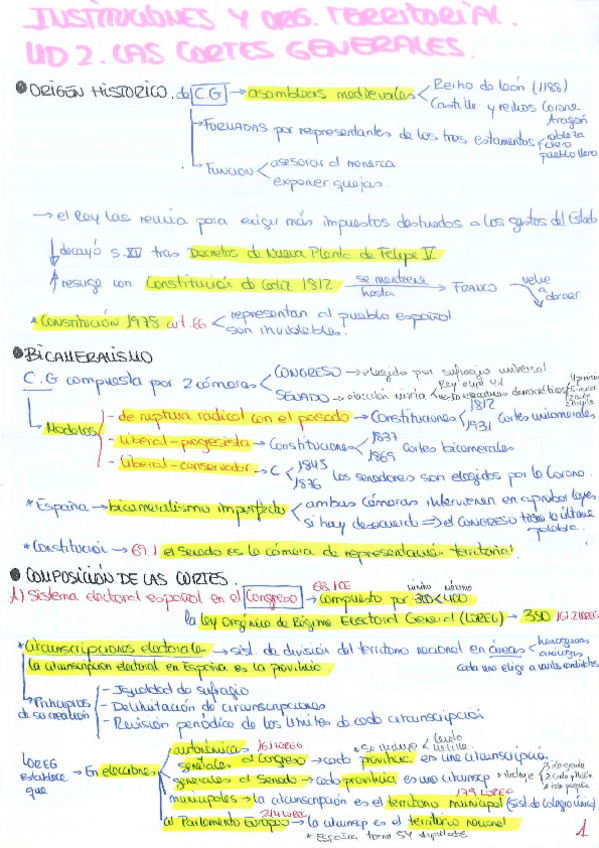 INSTITUCIONES Y ORG. TERRITORIAL.
UD 2. LAS CORTES GENERALES.
ORIGEN HISTORICO. de C.G → asambleas medievales
Reino de León (1188)
Castilla y reinos Corona Aragón
→ FORMADAS por representantes de los tres estamentos
nobleza
clero
pueblo llano
→ FUNCION
asesorar al monarca
exponer quejas.
→ el Rey las reunía para exigir más impuestos destinados a los gastos del Estado
decayó s. XV tras Decretos de Nueva Planta de Felipe V
resurge con Constitución de Cádiz 1812 se mantiene hasta → FRANCO vuelve a decaer
* Constitución 1978 art. 66
representan al pueblo español
son inviolables.
BICAMERALISMO
C.G compuesta por 2 cámaras
CONGRESO → elegido por sufragio universal
SENADO → elección mixta
Modelos
- de ruptura radical con el pasado → Constituciones 1812 1931 Cortes unicamerales
- liberal-progresista → Constituciones 1837 1869 Cortes bicamerales
- liberal-conservador → C 1845 1876 los senadores son elegidos por la Corona.
* España → bicameralismo imperfecto
ambas cámaras intervienen en aprobar leyes
si hay desacuerdo ⇒ el CONGRESO tiene la última palabra.
* Constitución → 69.1 el Senado es la cámara de representación territorial.
COMPOSICIÓN DE LAS CORTES.
1) Sistema electoral español en el Congreso → 68.1 CE compuesto por mínimo 300 < 400 máximo
la Ley Orgánica de Régimen Electoral General (LOREG) → 350 162 LOREG
* Circunscripciones electorales → sist. de división del territorio nacional en áreas
cada una elige a varios candidatos
la circunscripción electoral en España es la provincia
Principios de su creación
- Igualdad de sufragio
- Delimitación de circunscripciones
- Revisión periódica de los límites de cada circunscripción
LOREG establece que → En elecciones
autonómicas 161 LOREG
generales al Congreso → cada provincia es una circunscripció.
* Se incluye Ceuta Melilla
generales al Senado → cada provincia es una circunscp * incluye
municipales → la circunscripción es el territorio municipal 179 LOREG (sist. de colegio único)
al Parlamento Europeo 214 LOREG → la circunscp es el territorio nacional
* España tiene 54 diputados
1